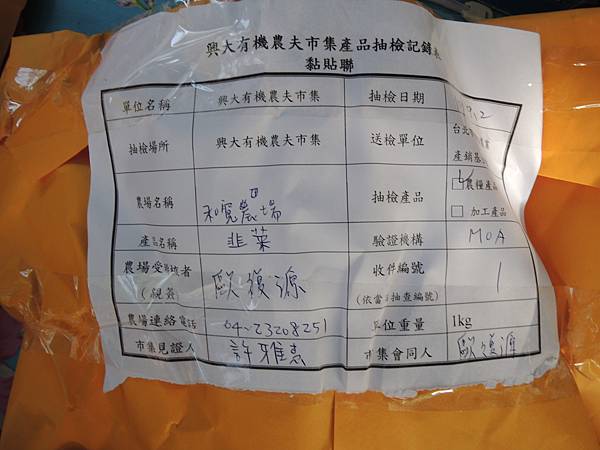 興大有機農夫市集產品抽檢記錄表
黏貼聯
單位名稱 興大有機農夫市集 抽檢日期
抽檢場所 興大有機農夫市集 送檢單位 台北
產銷基
農場名稱 和寬農場 抽檢產品 農糧產品
加工產品
產品名稱 韭菜 驗證機構 MOA
農場受檢者 歐 源 收件編號 1
(親簽 (依當 抽查編號)
農場連絡電話 04-23208251 單位重量 1kg
市集見證人 許雅 市集會同人 歐